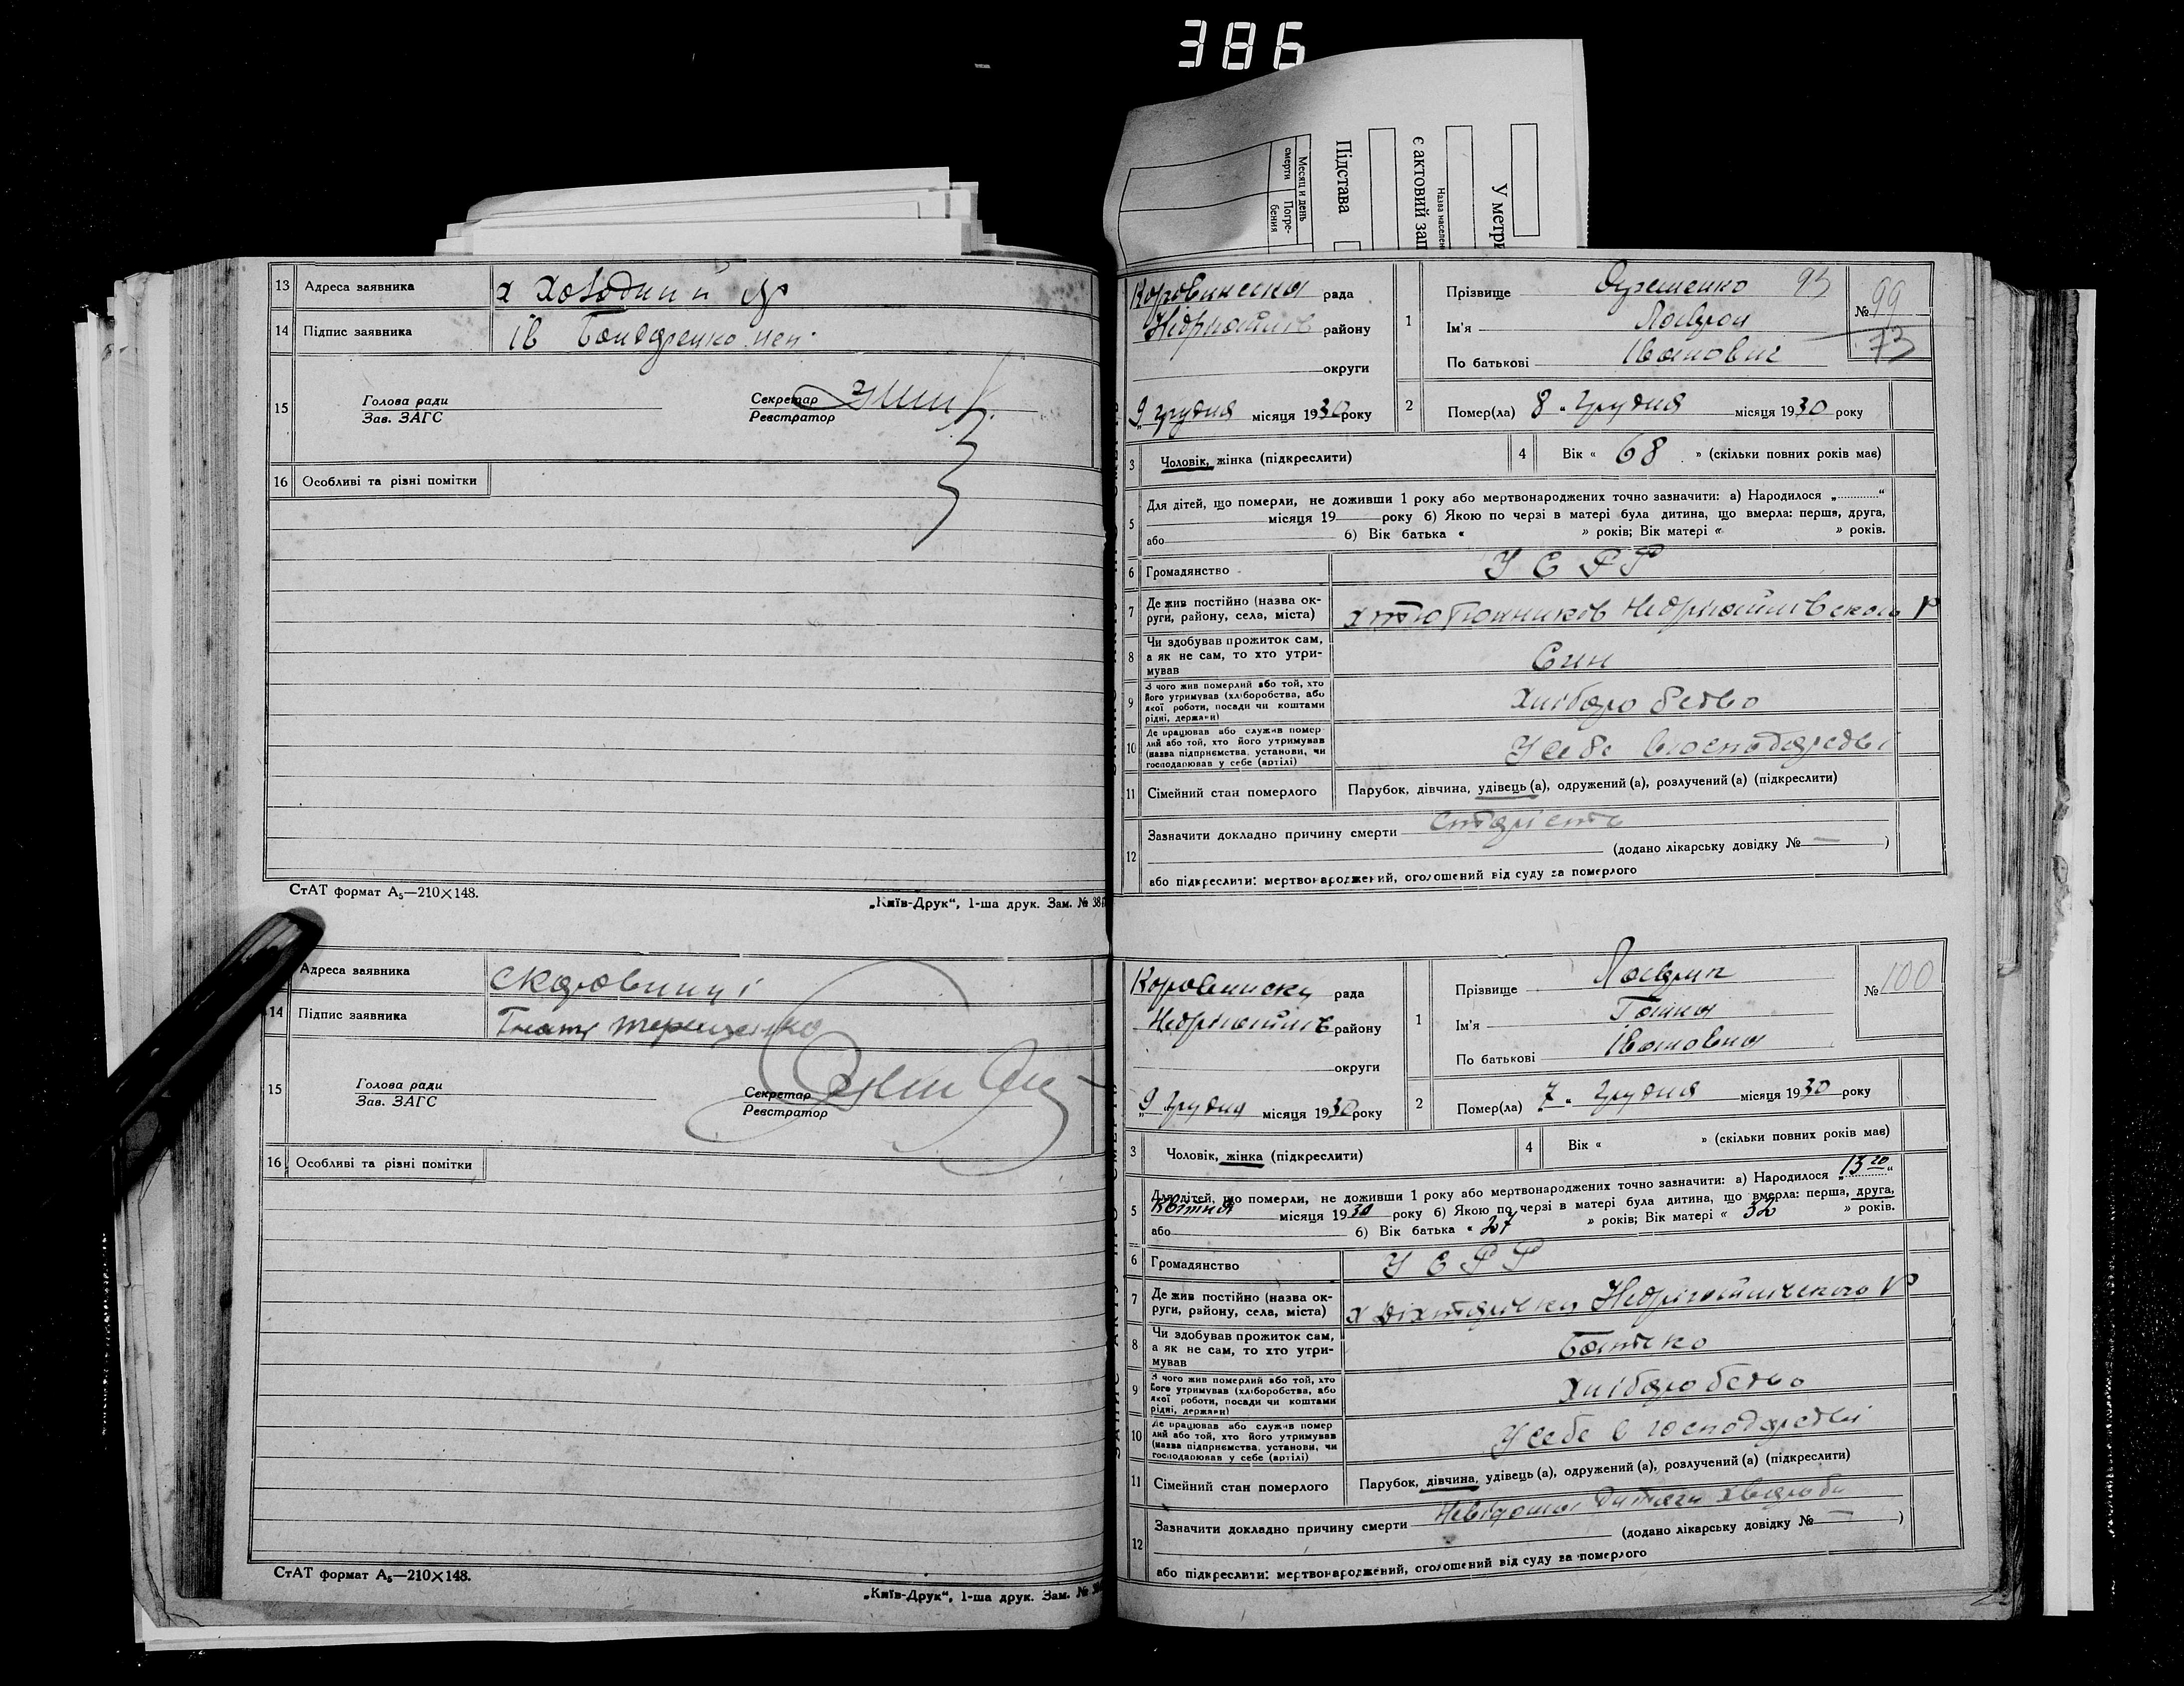 386
Месяц и день
смерти
Погре-
бения
Підстава
є актовий зап
Назва населен
У метри
13 Адреса заявника х Холодний
14 Підпис заявника Ів Бондаренко
15 Голова ради
Зав. ЗАГС
Секретар
Реєстратор
16 Особливі та різні помітки
СтАТ формат А₅—210×148.
„Київ-Друк“, 1-ша друк. Зам. № 38
Адреса заявника
14 Підпис заявника Гнат Терещенко
15 Голова ради
Зав. ЗАГС
Секретар
Реєстратор
16 Особливі та різні помітки
СтАТ формат А₅—210×148.
„Київ-Друк“, 1-ша друк. Зам. №
Коровинська рада
району
округи
„9 грудня місяця 1930 року
1 Прізвище 93
Ім'я
По батькові Іванович
№ 99
73
2 Помер(ла) 8 „ грудня місяця 1930 року
3 Чоловік, жінка (підкреслити)
4 Вік « 68 » (скільки повних років має)
5 Для дітей, що померли, не доживши 1 року або мертвонароджених точно зазначити: а) Народилося „ “
місяця 19 року б) Якою по черзі в матері була дитина, що вмерла: перша, друга,
або б) Вік батька « » років; Вік матері « » років.
6 Громадянство УСРР
7 Де жив постійно (назва ок-
руги, району, села, міста)
8 Чи здобував прожиток сам,
а як не сам, то хто утри-
мував Син
9 З чого жив померлий або той, хто
його утримував (хліборобства, або
якої роботи, посади чи коштами
рідні, держави) Хліборобство
10 Де працював або служив помер
лий або той, хто його утримував
(назва підприємства, установи, чи
господарював у себе (артілі) У себе
11 Сімейний стан померлого Парубок, дівчина, удівець (а), одружений (а), розлучений (а) (підкреслити)
12 Зазначити докладно причину смерти старість
(додано лікарську довідку № — )
або підкреслити: мертвонароджений, оголошений від суду за померлого
рада
району
округи
„9 грудня місяця 1930 року
1 Прізвище
Ім'я Ганна
По батькові Івановна
№ 100
2 Помер(ла) 7 „ грудня місяця 1930 року
3 Чоловік, жінка (підкреслити)
4 Вік « » (скільки повних років має)
5 Для дітей, що померли, не доживши 1 року або мертвонароджених точно зазначити: а) Народилося „13 го“
Квітня місяця 1930 року б) Якою по черзі в матері була дитина, що вмерла: перша, друга,
або б) Вік батька « 27 » років; Вік матері « 32 » років.
6 Громадянство УСРР
7 Де жив постійно (назва ок-
руги, району, села, міста)
8 Чи здобував прожиток сам,
а як не сам, то хто утри-
мував Батько
9 З чого жив померлий або той, хто
його утримував (хліборобства, або
якої роботи, посади чи коштами
рідні, держави) Хліборобство
10 Де працював або служив помер
лий або той, хто його утримував
(назва підприємства, установи, чи
господарював у себе (артілі) У себе в господарстві
11 Сімейний стан померлого Парубок, дівчина, удівець (а), одружений (а), розлучений (а) (підкреслити)
12 Зазначити докладно причину смерти
(додано лікарську довідку № — )
або підкреслити: мертвонароджений, оголошений від суду за померлого